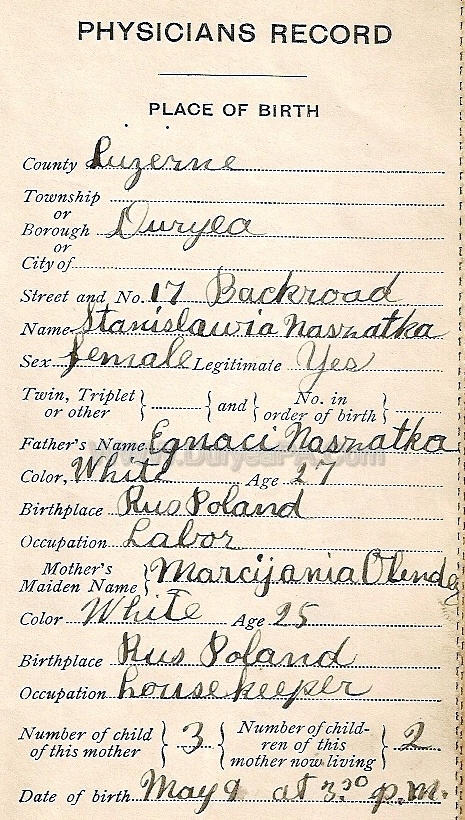 PHYSICIANS RECORD
PLACE OF BIRTH
County Luzerne
Township
or
Borough Duryea
or
City of
Street and No. 17 Backroad
Name Stanislawia Nasznatka
Sex female Legitimate Yes
Twin, Triplet or other } { and } No. in order of birth }
Father's Name Egnaci Nasznatka
Color, White Age 27
Birthplace Rus Poland
Occupation Labor
Mother's Maiden Name } Marcijania Olendez
Color White Age 25
Birthplace Rus Poland
Occupation housekeeper
Number of child of this mother } 3 { Number of children of this mother now living } 2
Date of birth May 9 at 3.30 p.m.